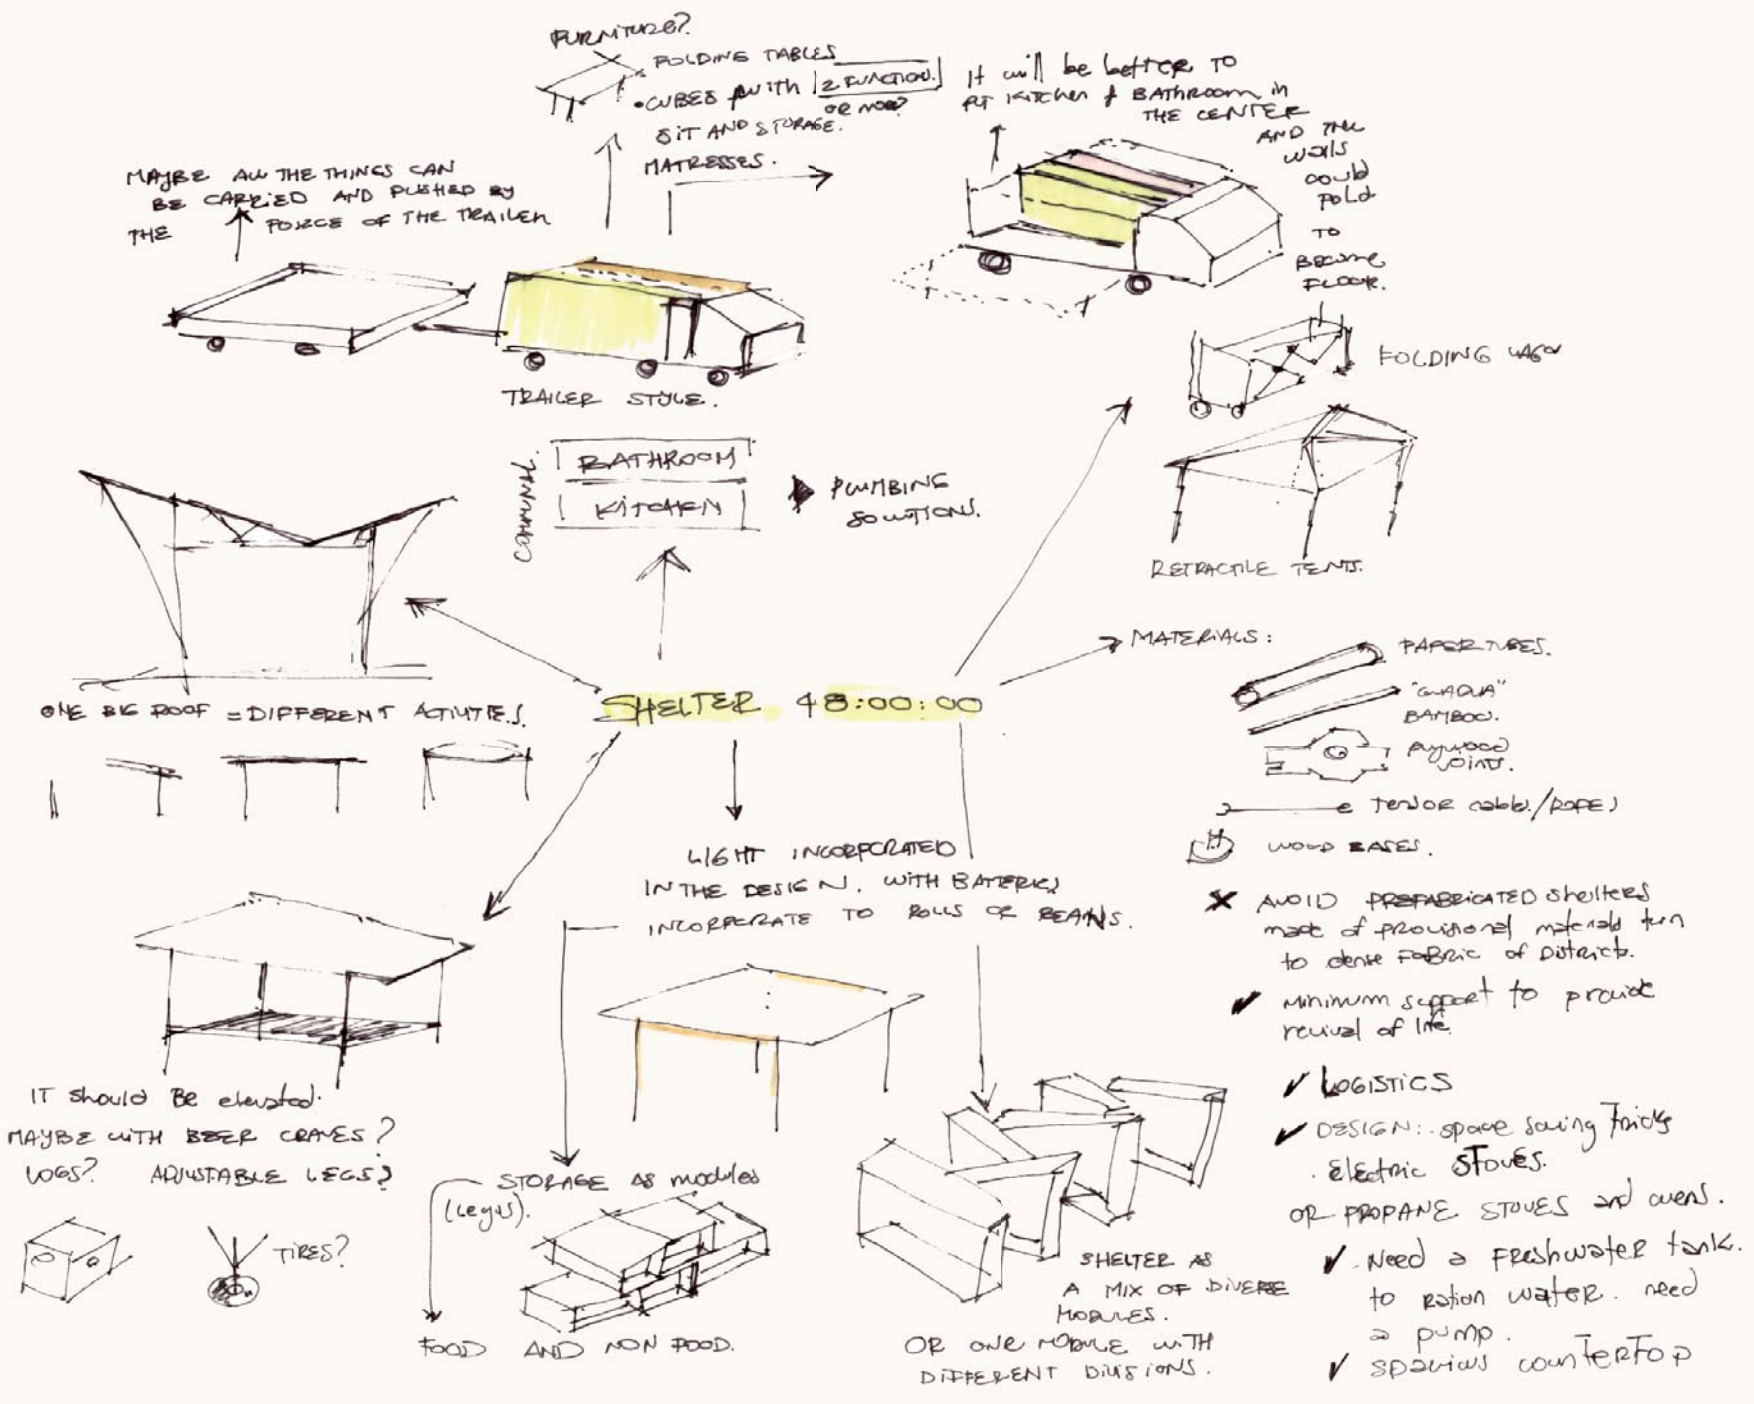 FURNITURE?
FOLDING TABLES
•CUBES WITH 2 FUNCTION.
OR MORE?
SIT AND STORAGE.
MATRESSES.
It will be better TO
PUT KITCHEN & BATHROOM in
THE CENTER
AND THE
walls
could
FOLD
TO
Become
FLOOR.
MAYBE ALL THE THINGS CAN
BE CARRIED AND PUSHED BY
THE FORCE OF THE TRAILER
TRAILER STYLE.
FOLDING WAGON
RETRACTILE TENTS.
COMMUNAL.
BATHROOM
KITCHEN
PLUMBING
SOLUTIONS.
ONE BIG ROOF = DIFFERENT ACTIVITIES.
SHELTER 48:00:00
MATERIALS:
PAPER TUBES.
"GUADUA"
BAMBOO.
plywood
joints.
TENSOR cables/ROPES
WOOD BASES.
LIGHT INCORPORATED
IN THE DESIGN. WITH BATERIES
INCORPERATE TO ROLLS OR BEAMS.
X AVOID PREFABRICATED shelters
made of provisional materials turn
to dense FABRIC of DISTRICTS.
✓ Minimum support to provide
revival of life.
✓ LOGISTICS
✓ DESIGN: space saving Tricks
. Electric STOVES.
OR PROPANE STOVES and ovens.
✓ Need a FReshwater tank.
to Ration water. need
a pump.
✓ spacius counterTop
IT should Be elevated.
MAYBE WITH BEER CRATES?
LOGS? ADJUSTABLE LEGS?
TIRES?
STORAGE AS modules
(Legos).
FOOD AND NON FOOD.
SHELTER AS
A MIX OF DIVERSE
MODULES.
OR ONE MODULE WITH
DIFFERENT DIVISIONS.